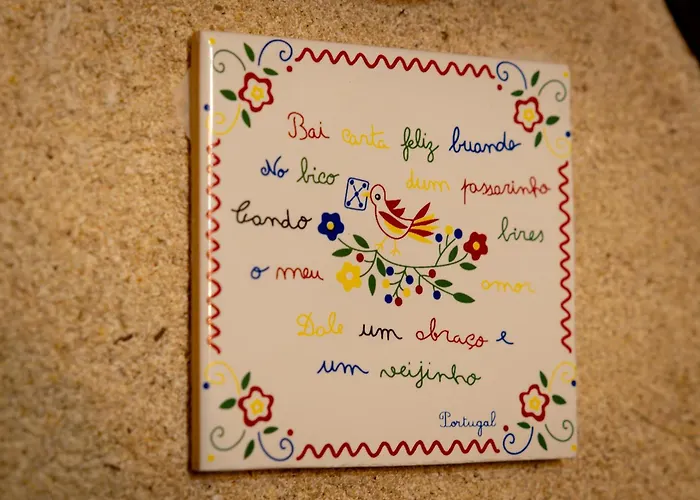 Bai carta feliz buando
No bico dum passarinho
Cando bires
o meu amor
Dale um abraço e
um veijinho
Portugal